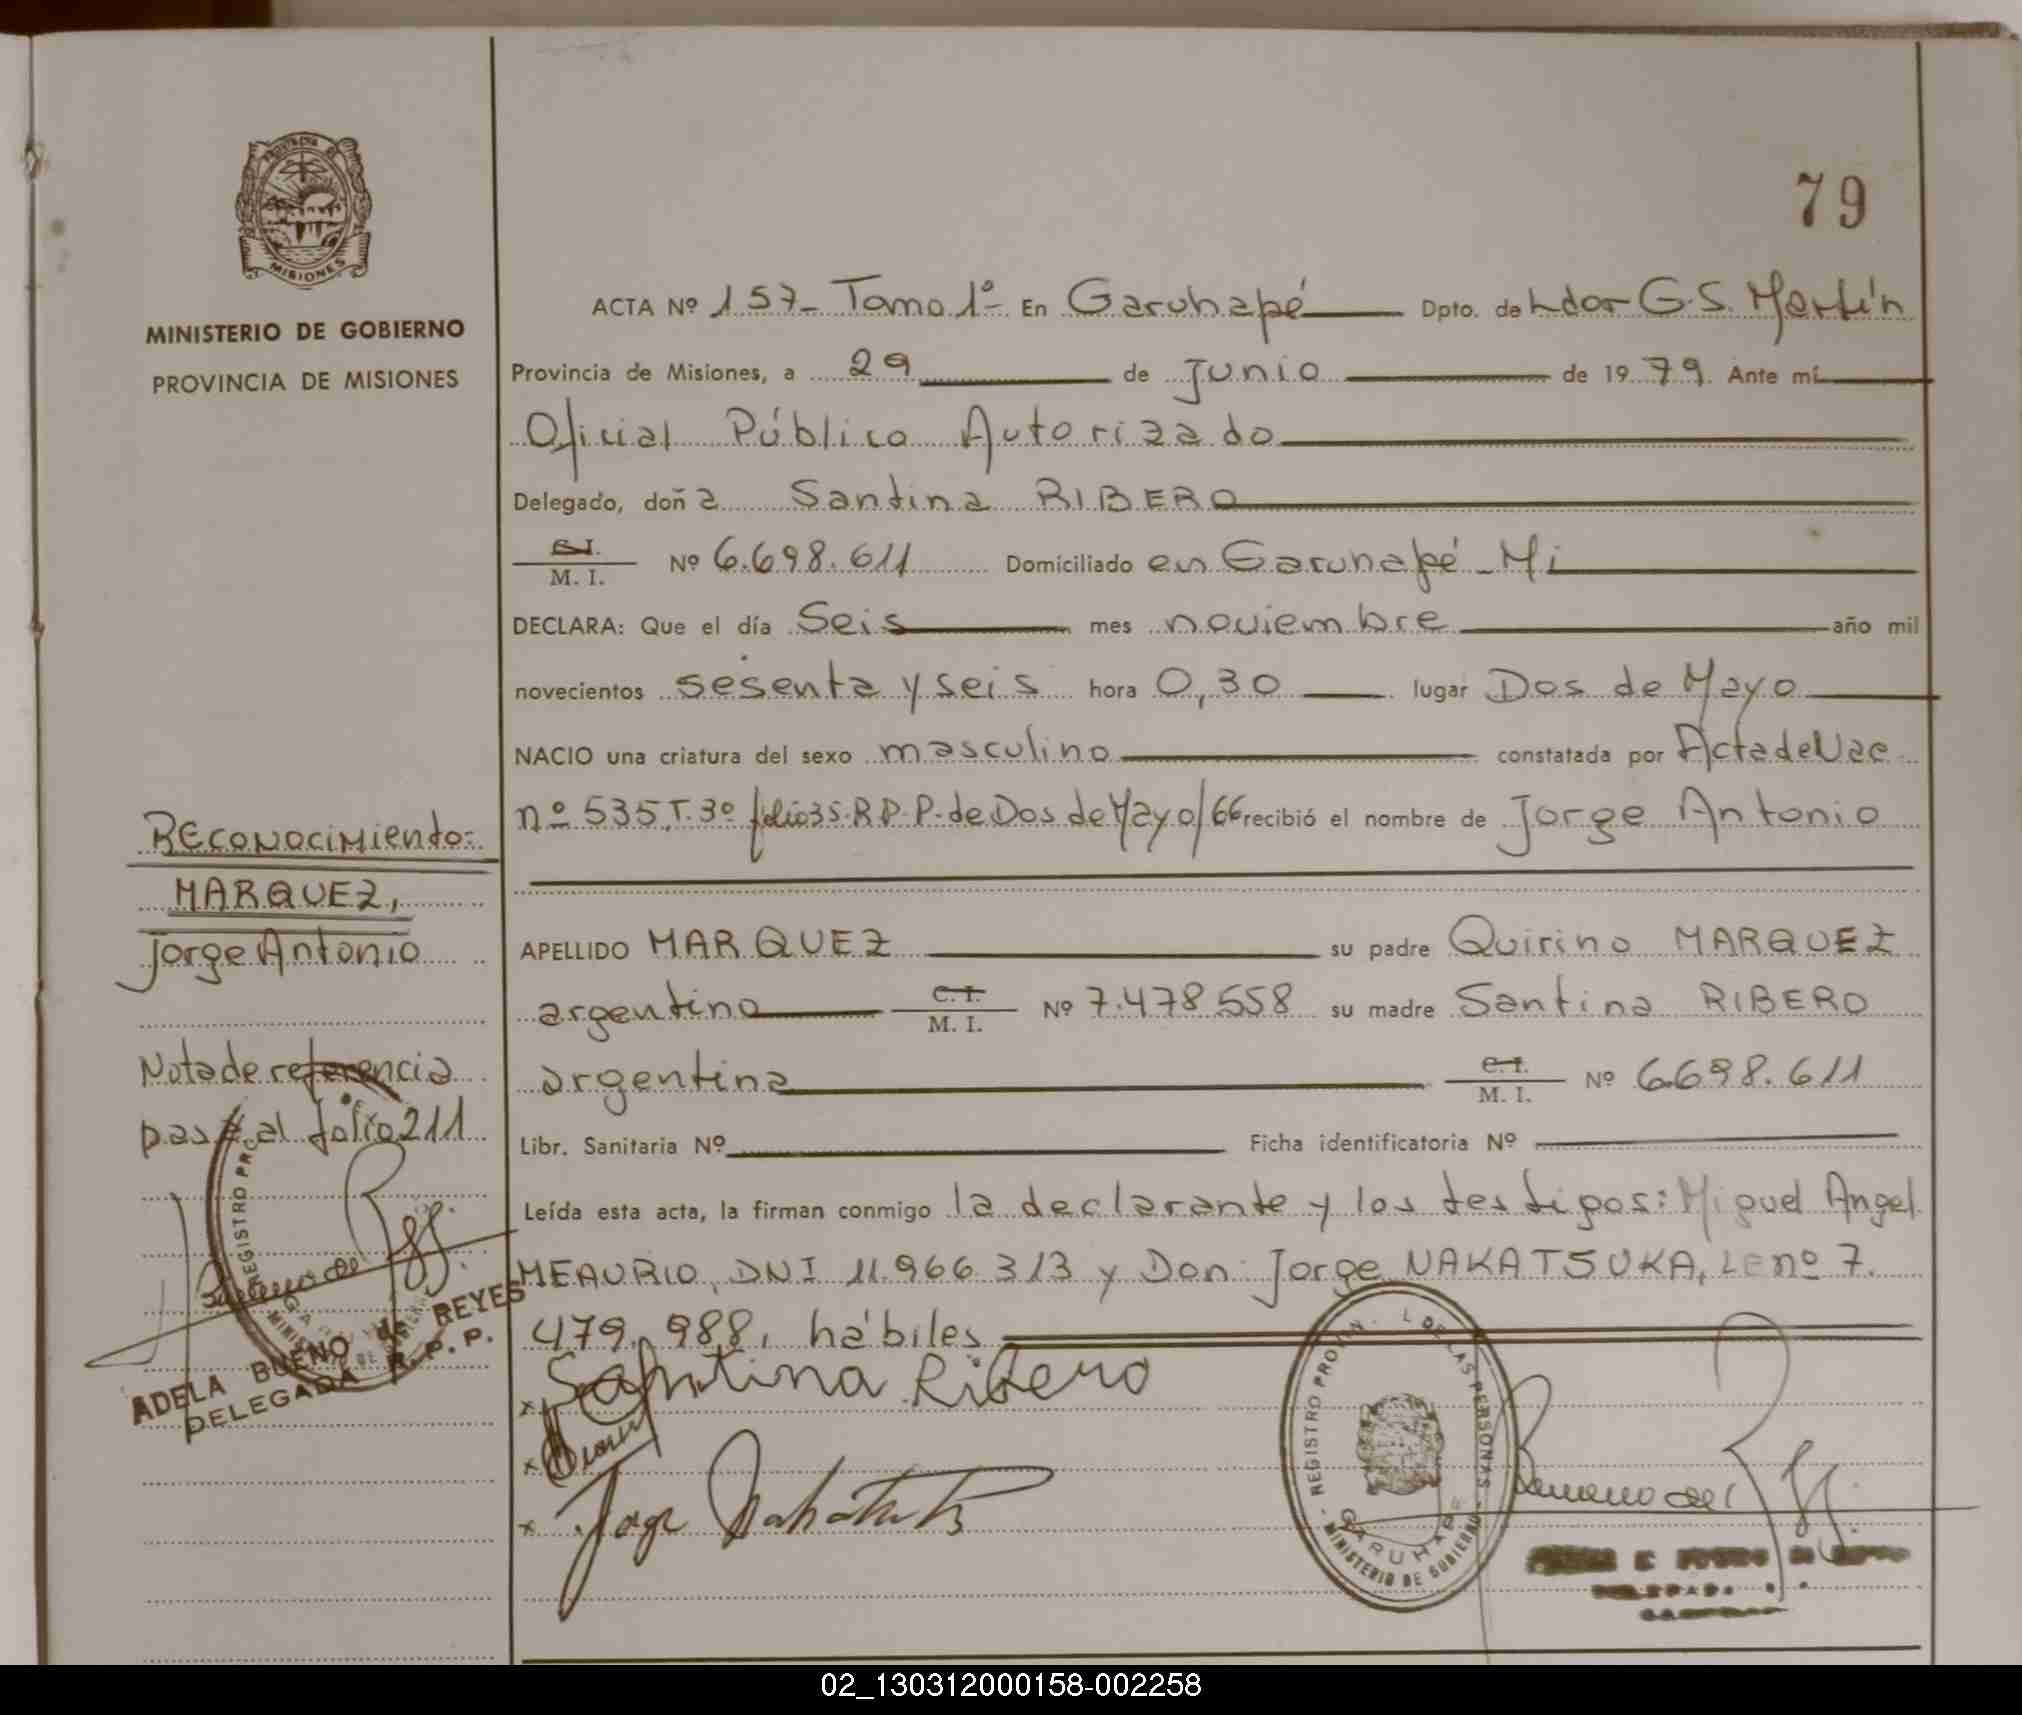 79
PROVINCIA DE
MISIONES
MINISTERIO DE GOBIERNO
PROVINCIA DE MISIONES
ACTA Nº 157- Tomo 1º- En Garuhapé Dpto. de Ldor G.S. Martín
Provincia de Misiones, a 29 de Junio de 1979. Ante mí
Oficial Público Autorizado
Delegado, doña Santina RIBERO
C.I. M. I. Nº 6.698.611 Domiciliado en Garuhapé - Mi
DECLARA: Que el día Seis mes noviembre año mil
novecientos sesenta y seis hora 0,30 lugar Dos de Mayo
NACIO una criatura del sexo masculino constatada por Acta de Nac
nº 535, T. 3º folio 35. R.P.P. de Dos de Mayo/66 recibió el nombre de Jorge Antonio
APELLIDO MARQUEZ su padre Quirino MARQUEZ
argentino C. I. M. I. Nº 7.478.558 su madre Santina RIBERO
argentina C. I. M. I. Nº 6.698.611
Libr. Sanitaria Nº Ficha identificatoria Nº
Leída esta acta, la firman conmigo la declarante y los testigos: Miguel Angel
MEAURIO, DNI 11.966.313 y Don Jorge NAKATSUKA, LE nº 7.
479.988, hábiles
x Santina Ribero
x
x Jorge Nakatsuka
REGISTRO PROVIN. L DE LAS PERSONAS
GARUHAPE
MINISTERIO DE GOBIERNO
Reconocimiento:
MARQUEZ,
Jorge Antonio
Nota de referencia
pasa al folio 211
REGISTRO PRO
MINIS
ADELA BUENO de REYES
DELEGADA R. P. P.
02_130312000158-002258